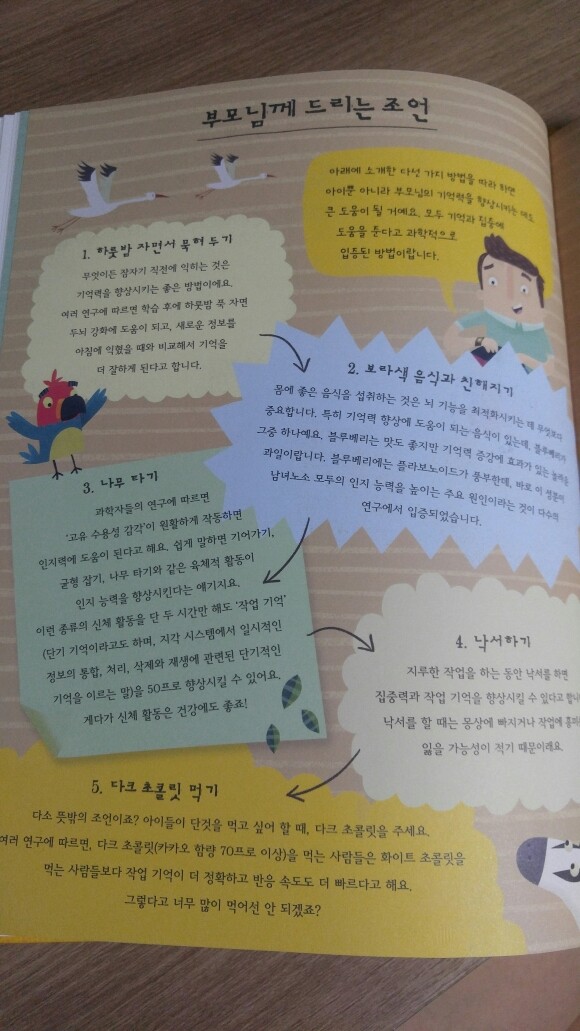 부모님께 드리는 조언
아래에 소개한 다섯 가지 방법을 따라 하면
아이뿐 아니라 부모님의 기억력을 향상시키는 데에
큰 도움이 될 거예요. 모두 기억과 집중에
도움을 준다고 과학적으로
입증된 방법이랍니다.
1. 하룻밤 자면서 묵혀 두기
무엇이든 잠자기 직전에 익히는 것은
기억력을 향상시키는 좋은 방법이에요.
여러 연구에 따르면 학습 후에 하룻밤 푹 자면
두뇌 강화에 도움이 되고, 새로운 정보를
아침에 익혔을 때와 비교해서 기억을
더 잘하게 된다고 합니다.
2. 보라색 음식과 친해지기
몸에 좋은 음식을 섭취하는 것은 뇌 기능을 최적화시키는 데 무엇보다
중요합니다. 특히 기억력 향상에 도움이 되는 음식이 있는데, 블루베리가
그중 하나예요. 블루베리는 맛도 좋지만 기억력 증강에 효과가 있는
과일이랍니다. 블루베리에는 플라보노이드가 풍부한데, 바로 이 성분이
남녀노소 모두의 인지 능력을 높이는 주요 원인이라는 것이 다수의
연구에서 입증되었습니다.
3. 나무 타기
과학자들의 연구에 따르면
'고유 수용성 감각'이 원활하게 작동하면
인지력에 도움이 된다고 해요. 쉽게 말하면 기어가기,
균형 잡기, 나무 타기와 같은 육체적 활동이
인지 능력을 향상시킨다는 얘기지요.
이런 종류의 신체 활동을 단 두 시간만 해도 '작업 기억'
(단기 기억이라고도 하며, 지각 시스템에서 일시적인
정보의 통합, 처리, 삭제와 재생에 관련된 단기적인
기억을 이르는 말)을 50프로 향상시킬 수 있어요.
게다가 신체 활동은 건강에도 좋죠!
4. 낙서하기
지루한 작업을 하는 동안 낙서를 하면
집중력과 작업 기억을 향상시킬 수 있다고 합니
낙서를 할 때는 몽상에 빠지거나 작업에 흥미
잃을 가능성이 적기 때문이래요.
5. 다크 초콜릿 먹기
다소 뜻밖의 조언이죠? 아이들이 단것을 먹고 싶어 할 때, 다크 초콜릿을 주세요.
여러 연구에 따르면, 다크 초콜릿(카카오 함량 70프로 이상)을 먹는 사람들은 화이트 초콜릿을
먹는 사람들보다 작업 기억이 더 정확하고 반응 속도도 더 빠르다고 해요.
그렇다고 너무 많이 먹어선 안 되겠죠?